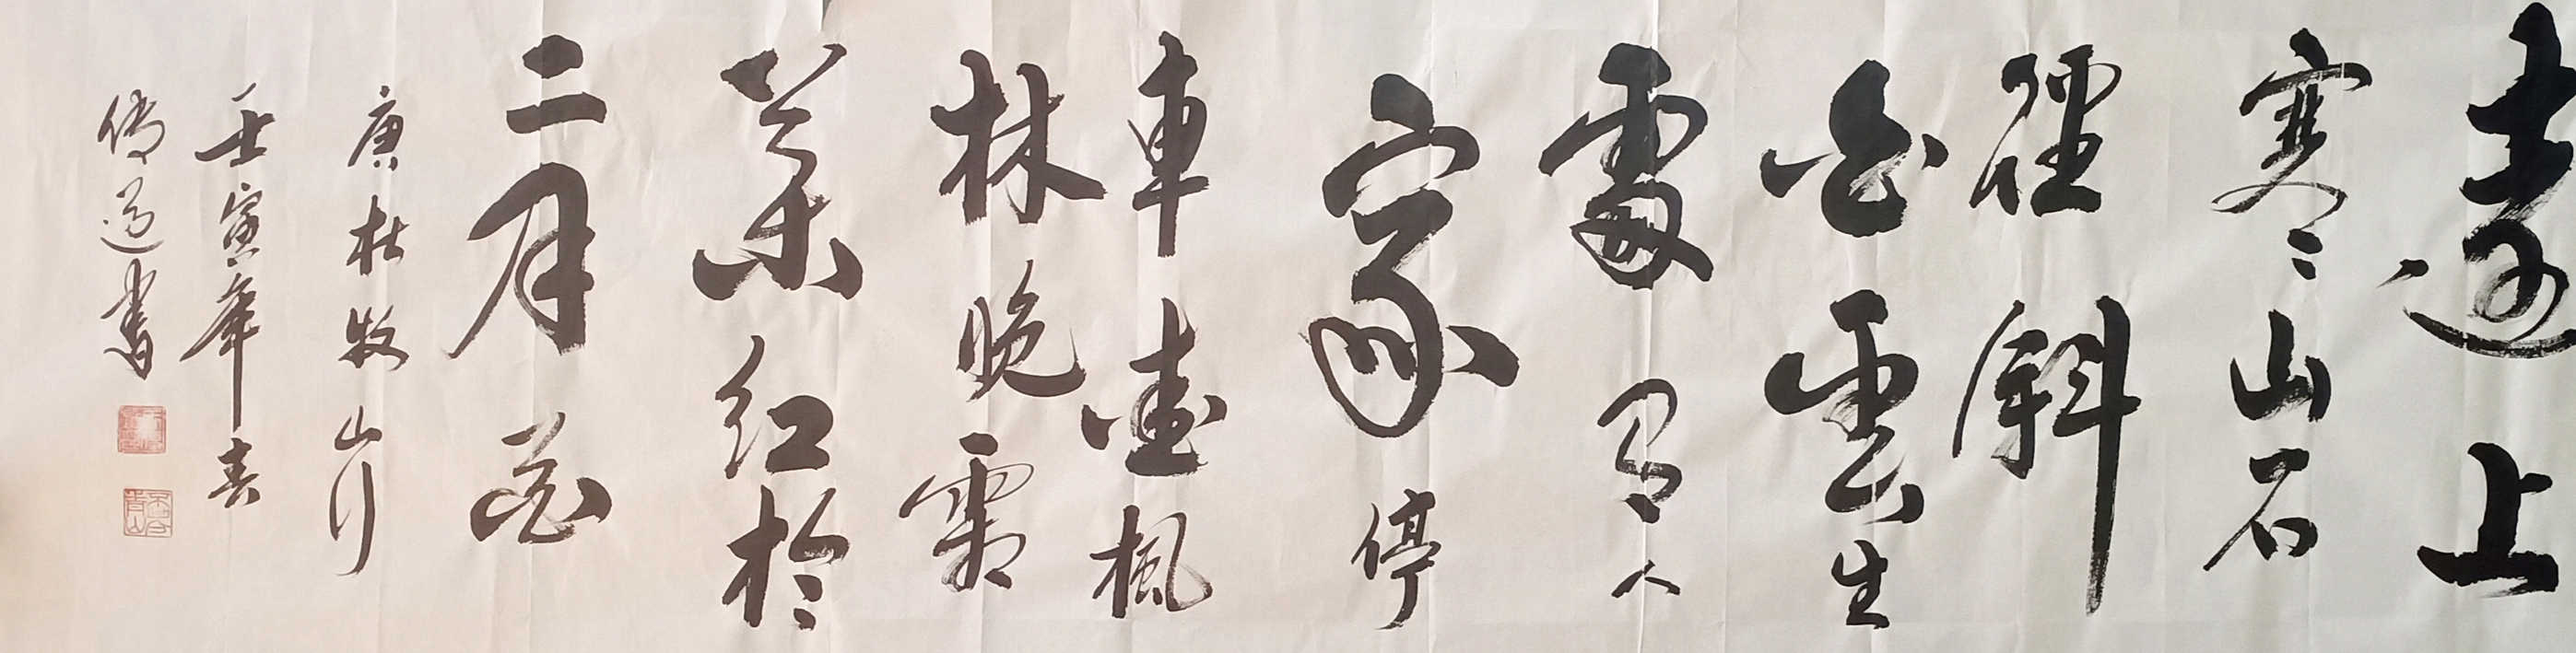 遠上
寒山石
徑斜
白雲生
處有人
家停
車坐楓
林晚霜
葉紅於
二月花
唐杜牧山行
壬寅年春
傳道書